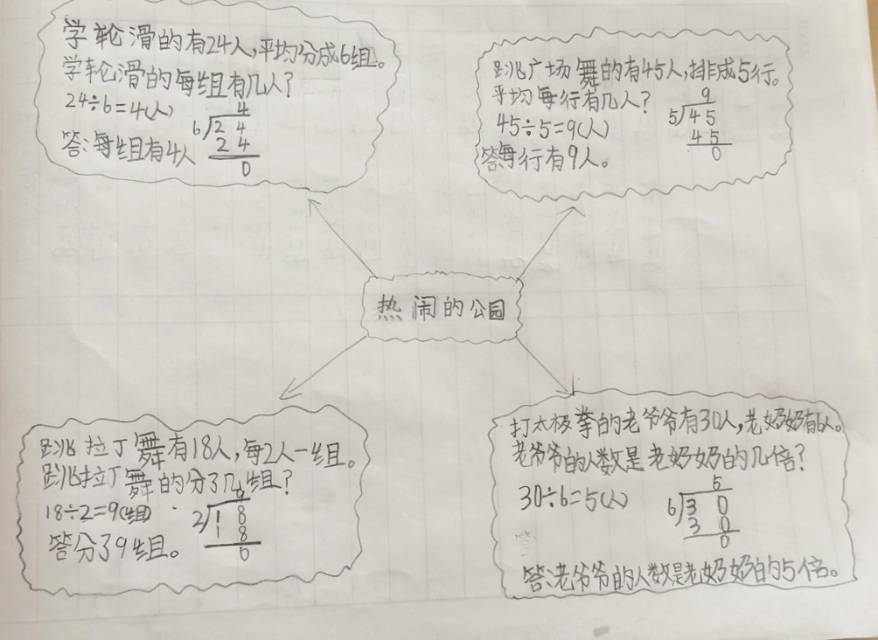 学轮滑的有24人,平均分成6组。
学轮滑的每组有几人?
24÷6=4(人)
4
6)24
24
0
答:每组有4人
跳广场舞的有45人,排成5行。
平均每行有几人?
45÷5=9(人)
9
5)45
45
0
答每行有9人。
热闹的公园
跳拉丁舞有18人,每2人一组。
跳拉丁舞的分了几组?
18÷2=9(组)
9
2)18
18
0
答分了9组。
打太极拳的老爷爷有30人,老奶奶有6人。
老爷爷的人数是老奶奶的几倍?
30÷6=5(人)
5
6)30
30
0
答:老爷爷的人数是老奶奶的5倍。